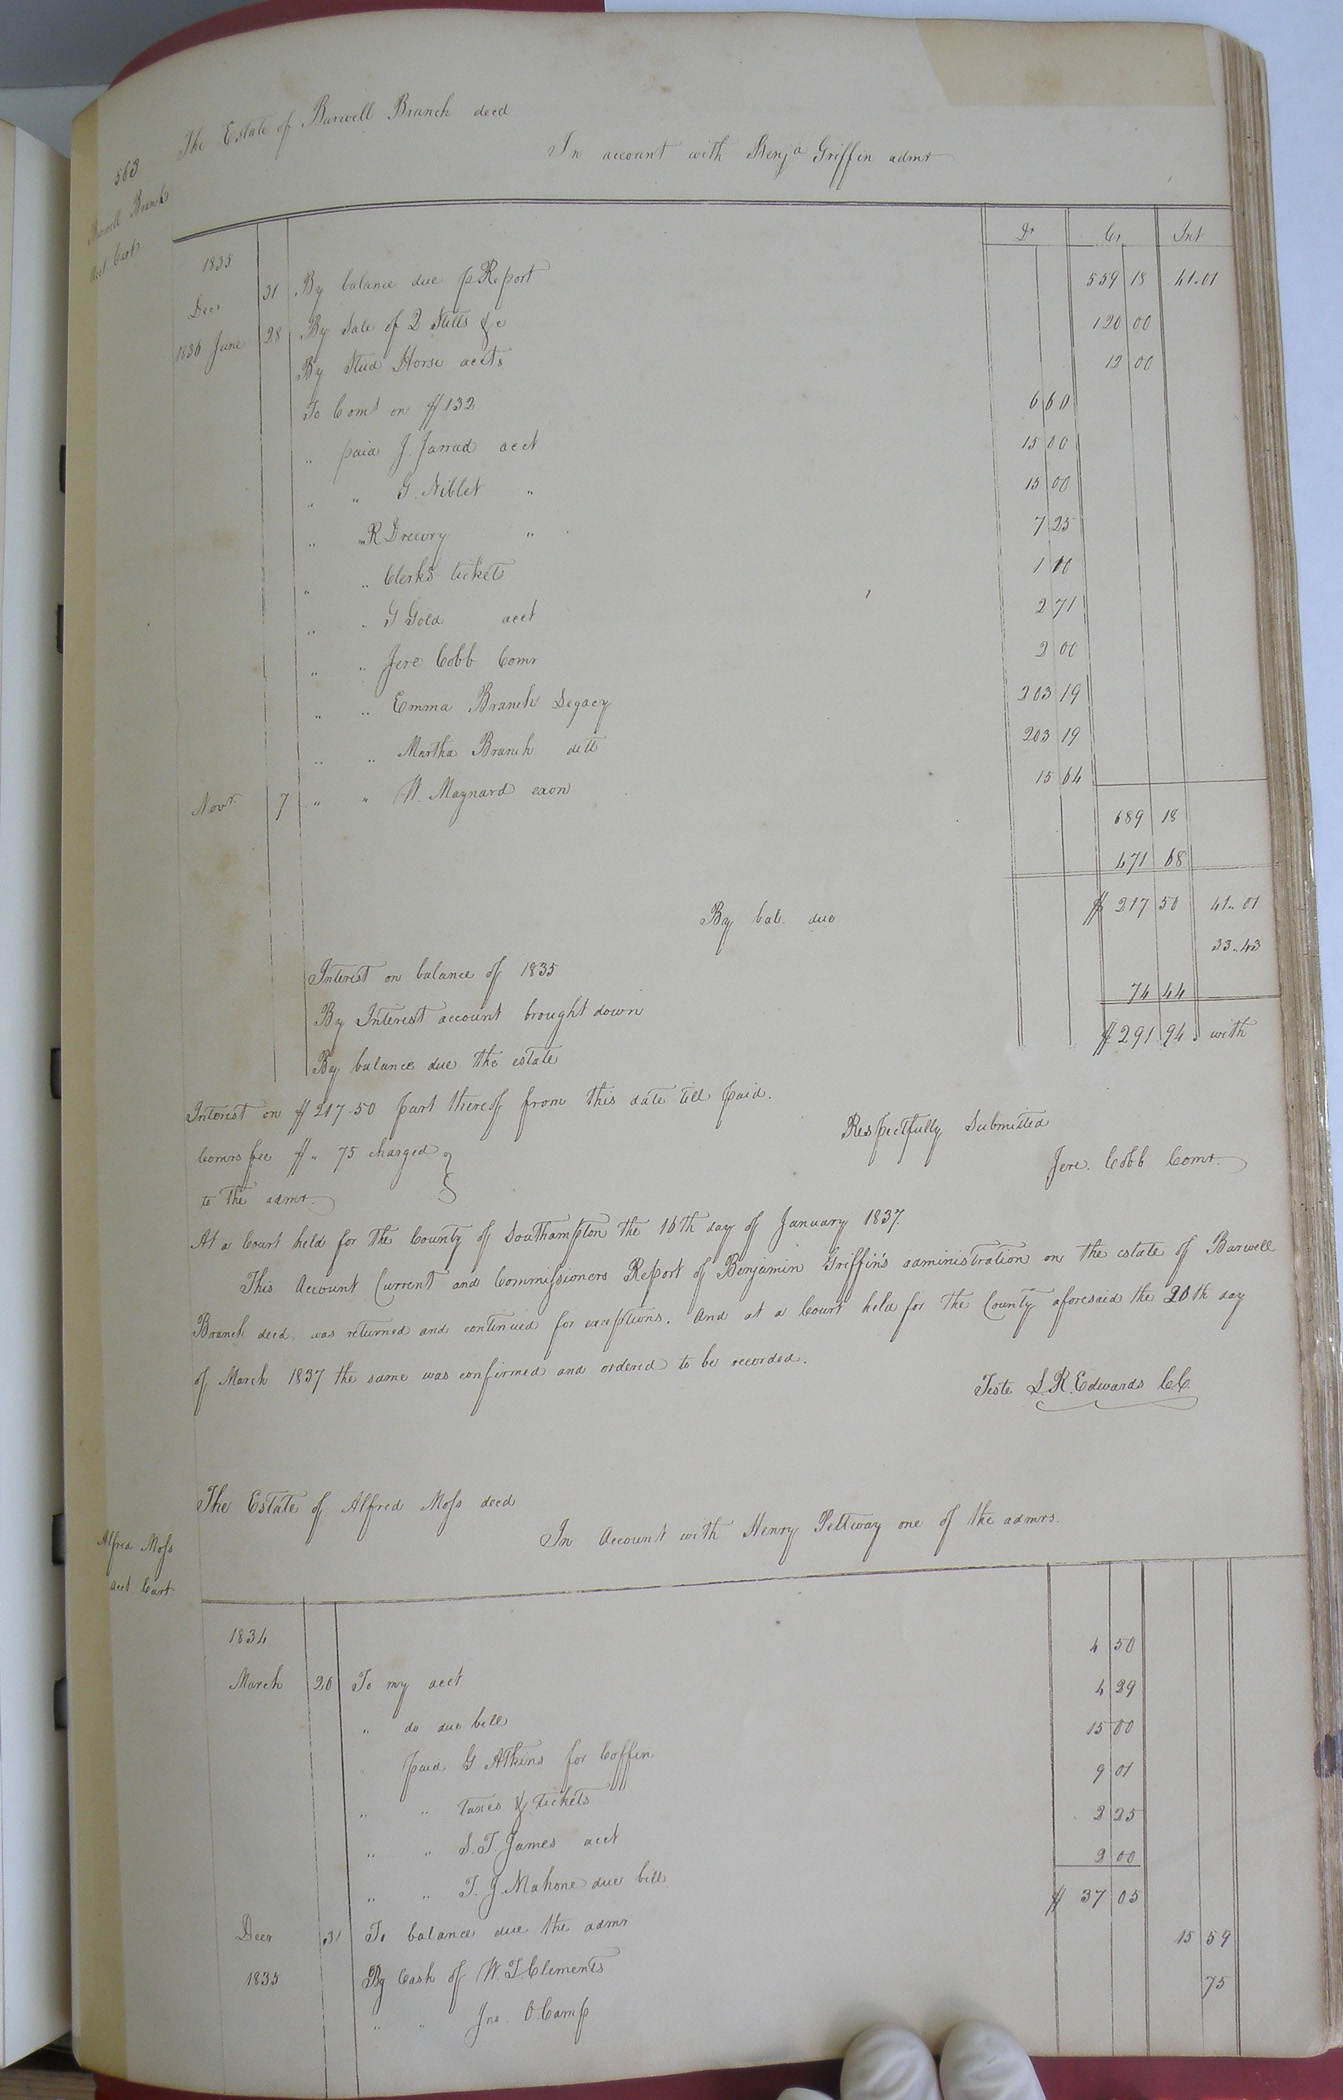 563
The Estate of Burwell Branch decd
In account with Benja Griffin admr
Burwell Branch
Acct Curt
Dr Cr Int
1835
Decr 31 By balance due p Report 559 18 41.01
1836 June 28 By Sale of 2 Stills &c 120 00
By Stud Horse accts 12 00
To Coms on $132 6 60
" paid J. Jarrad acct 15 00
" " G. Niblet " 15 00
" " R Drewry " 7 25
" " Clerks tickets 1 00
" " G Gold acct 2 71
" " Jere Cobb Comr 2 00
" " Emma Branch Legacy 203 19
" " Martha Branch ditto 203 19
Novr 7 " " W. Maynard exon 15 64
689 18
471 68
By bal. due $ 217 50 41.. 01
Interest on balance of 1835 33..43
By Interest account brought down 74 44
By balance due the estate $ 291 94 with
Interest on $217.50 part thereof from this date till paid.
Comrs fee $ " 75 charged
to the admr.
Respectfully Submitted
Jere. Cobb Comr.
At a Court held for the County of Southampton the 16th day of January 1837.
This Account Current and Commissioners Report of Benjamin Griffin's administration on the estate of Burwell
Branch decd. was returned and continued for exceptions. And at a Court held for the County aforesaid the 20th day
of March 1837 the same was confirmed and ordered to be recorded.
Teste L. R. Edwards CC
The Estate of Alfred Moss decd
In Account with Henry Pettway one of the admrs.
Alfred Moss
acct Curt
1834
March 20 To my acct 4 50
" do due bill 4 29
paid G Atkins for Coffin 15 00
" " taxes & tickets 9 01
" " S. T. James acct 2 25
" " T. J. Mahone due bill 2 00
Decr 31 To balance due the admr $ 37 05
1835 By Cash of W. T. Clements 15 59
" " Jno. O. Camp 75